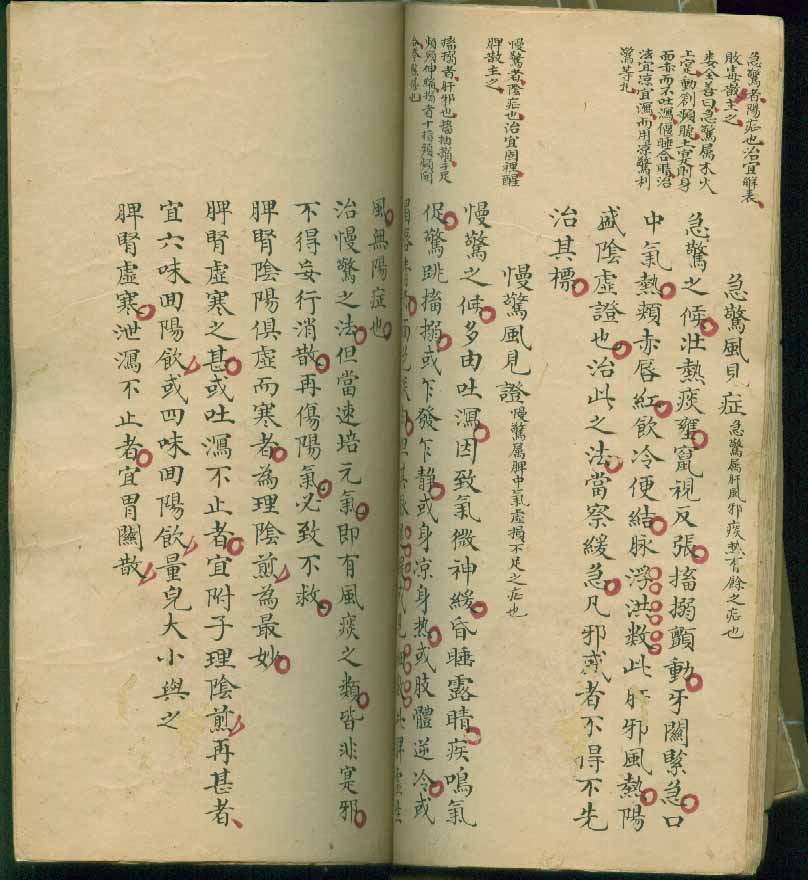 急驚者陽症也治宜解表
敗毒散主之
婁全善曰急驚屬木火
土實動劄頻騰土實則身
而赤而不吐瀉偃睡合睛治
法宜凉宜瀉而用凉驚利
驚等丸
慢驚者陰症也治宜固裡醒
脾散主之
搐搦者肝邪也搐抽掣手足
頻頻伸縮搦者十指頻頻向
急驚風見症急驚屬肝風邪痰熱有餘之症也
急驚之候壯熱痰壅竄視反張搐搦顫動牙關緊急口
中氣熱頰赤唇紅飲冷便結脉浮洪数此肝邪風熱陽
盛陰虛證也治此之法當察緩急凡邪或者不得不先
治其標
慢驚風見證慢驚屬脾中氣虛損不足之症也
慢驚之候多由吐瀉因致氣微神緩昏睡露睛痰鳴氣
促驚跳搐搦或乍發乍静或身凉身熱或肢體逆冷或
風無陽症也
治慢驚之法但當速培元氣即有風痰之類皆非寔邪
不得妄行消散再傷陽氣必致不救
脾腎陰陽俱虛而寒者為理陰煎為最妙
脾腎虛寒之甚或吐瀉不止者宜附子理陰煎再甚者
宜六味回陽飲或四味回陽飲量兒大小與之
脾腎虛寒泄瀉不止者宜胃關散